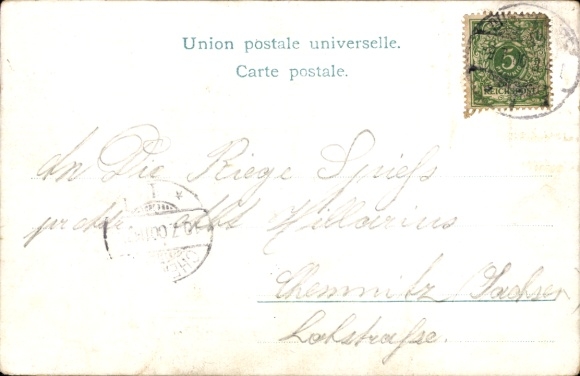 Union postale universelle.
Carte postale.
5
REICHSPOST
An Die Riege Spiess
Hillarius
Chemnitz/Sachsen
Lohstrasse.